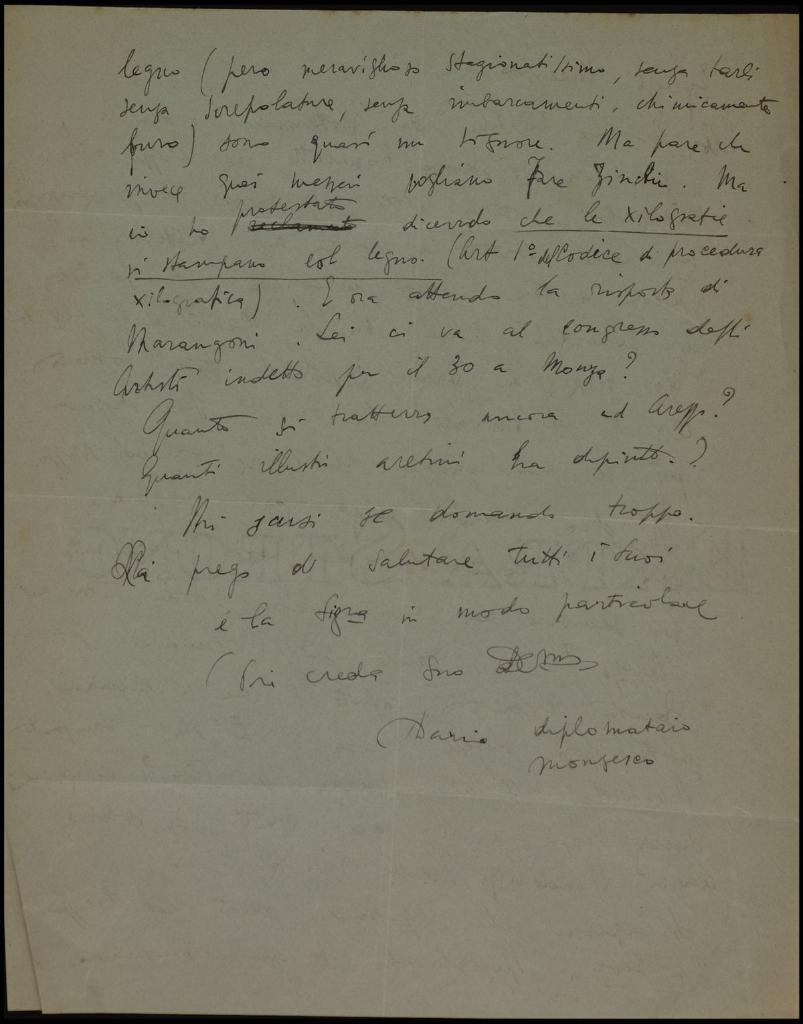 legno (pero meraviglioso stagionatissimo, senza tarli
senza screpolature, senza imbarcamenti, chimicamente
puro) sono quasi un signore. Ma pare che
invece quei messeri vogliano fare zinchi. Ma
io ho protestato dicendo che le xilografie
si stampano col legno. (Art 1º del Codice di procedura
xilografica). E ora attendo la risposta di
Marangoni. Lei ci va al congresso degli
Artisti indetto per il 30 a Monza?
Quanto si tratterrà ancora ad Arezzo?
Quanti illustri aretini ha dipinto?
Mi scusi se domando troppo.
La prego di salutare tutti i Suoi
e la Sigra in modo particolare
Mi creda Suo
Dario diplomataio
monzesco